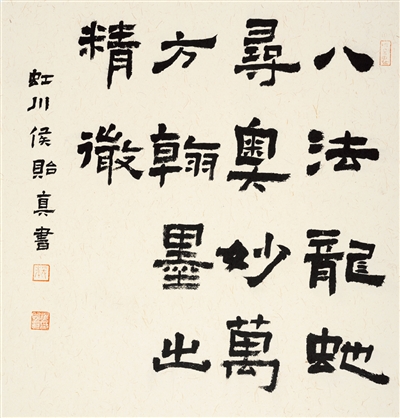 八法龍虵
尋奧妙萬
方翰墨出
精微
虹川侯貽真書